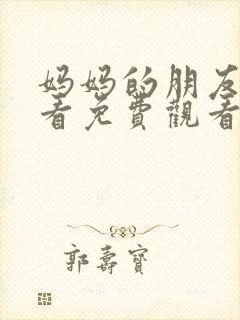 妈妈的朋友
看免費觀看
郭壽寶